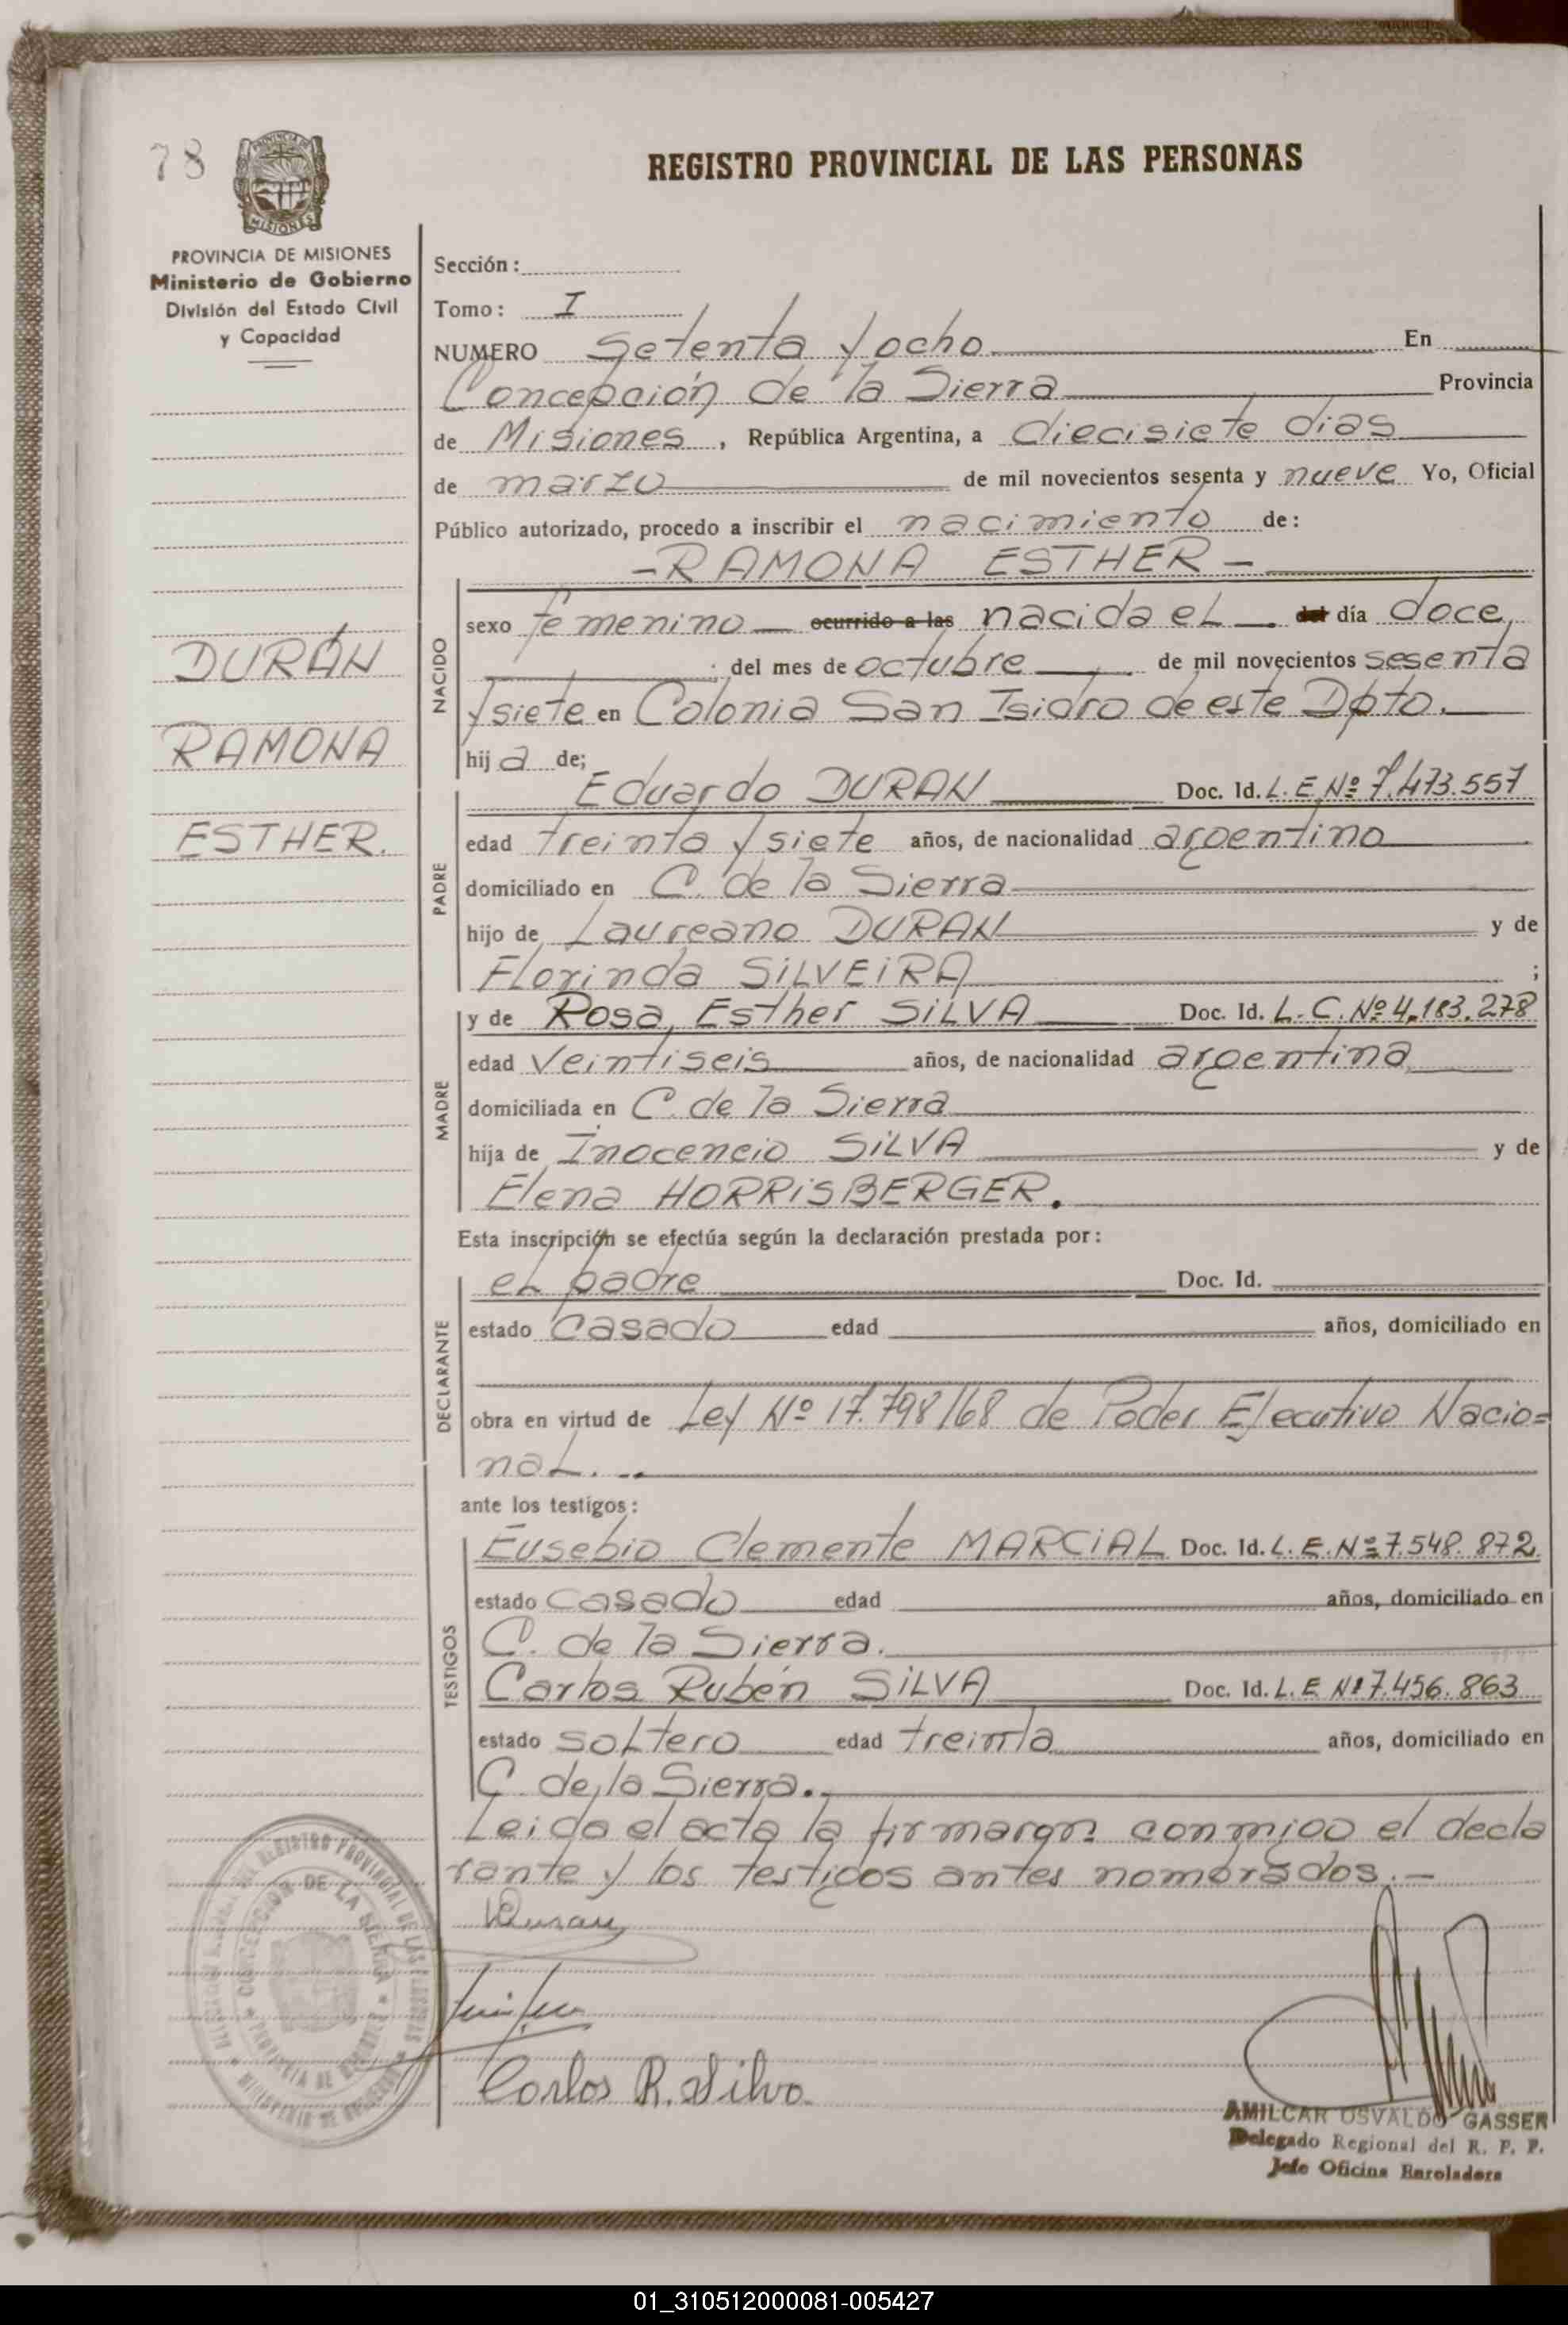 78
PROVINCIA DE MISIONES
REGISTRO PROVINCIAL DE LAS PERSONAS
PROVINCIA DE MISIONES
Ministerio de Gobierno
División del Estado Civil
y Capacidad
DURÁN
RAMONA
ESTHER.
Sección:
Tomo: I
NUMERO Setenta y ocho En
Concepción de la Sierra Provincia
de Misiones, República Argentina, a diecisiete dias
de marzo de mil novecientos sesenta y nueve Yo, Oficial
Público autorizado, procedo a inscribir el nacimiento de:
-RAMONA ESTHER-
NACIDO
sexo femenino ocurrido a las nacida el del día doce
del mes de octubre de mil novecientos sesenta
y siete en Colonia San Isidro de este Dpto.
hija de;
PADRE
Eduardo DURAN Doc. Id. L.E.Nº 7.473.557
edad treinta y siete años, de nacionalidad argentino
domiciliado en C. de la Sierra
hijo de Laureano DURAN y de
Florinda SILVEIRA ;
MADRE
y de Rosa Esther SILVA Doc. Id. L.C.Nº 4.183.278
edad veintiseis años, de nacionalidad argentina
domiciliada en C. de la Sierra
hija de Inocencio SILVA y de
Elena HORRISBERGER.
Esta inscripción se efectúa según la declaración prestada por:
DECLARANTE
el padre Doc. Id.
estado casado edad años, domiciliado en
obra en virtud de Ley Nº 17.798/68 de Poder Ejecutivo Nacio=
nal.
ante los testigos:
TESTIGOS
Eusebio Clemente MARCIAL Doc. Id. L.E.Nº 7.548.872
estado casado edad años, domiciliado en
C. de la Sierra.
Carlos Rubén SILVA Doc. Id. L.E Nº 7.456.863
estado soltero edad treinta años, domiciliado en
C. de la Sierra.
Leida el acta la firmaron conmigo el decla
rante y los testigos antes nombrados.-
Duran
Carlos R. Silva
REGISTRO PROVINCIAL DE LAS PERSONAS
CONCEPCION DE LA SIERRA
PROVINCIA DE MISIONES
MINISTERIO DE GOBIERNO
AMILCAR OSVALDO GASSER
Delegado Regional del R. P. P.
Jefe Oficina Enroladora
01_310512000081-005427